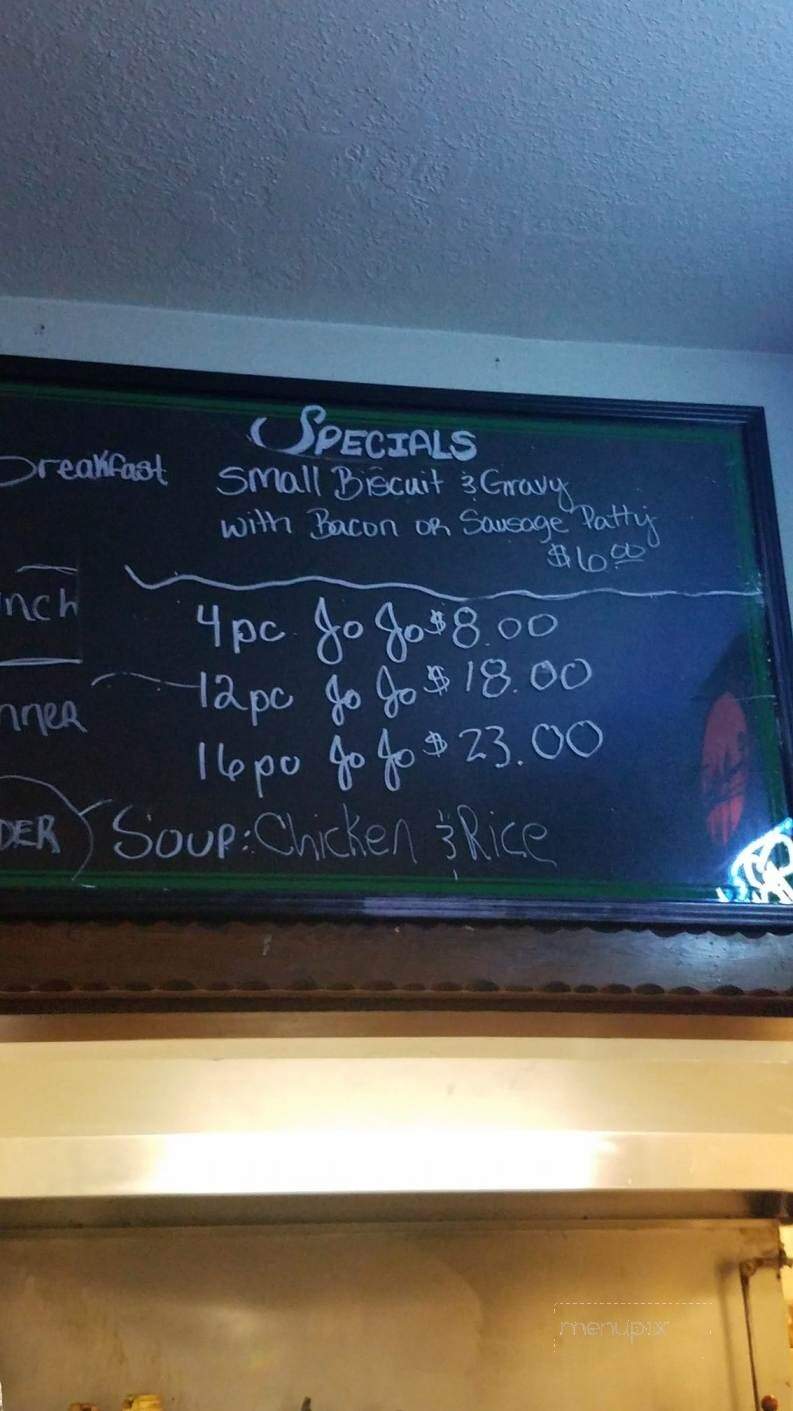 SPECIALS
Breakfast Small Biscuit & Gravy
with Bacon or Sausage Patty
$6.00
nch
4pc Jo Jo $8.00
12pc Jo Jo $18.00
nner
16pc Jo Jo $23.00
DER Soup: Chicken & Rice
menupix